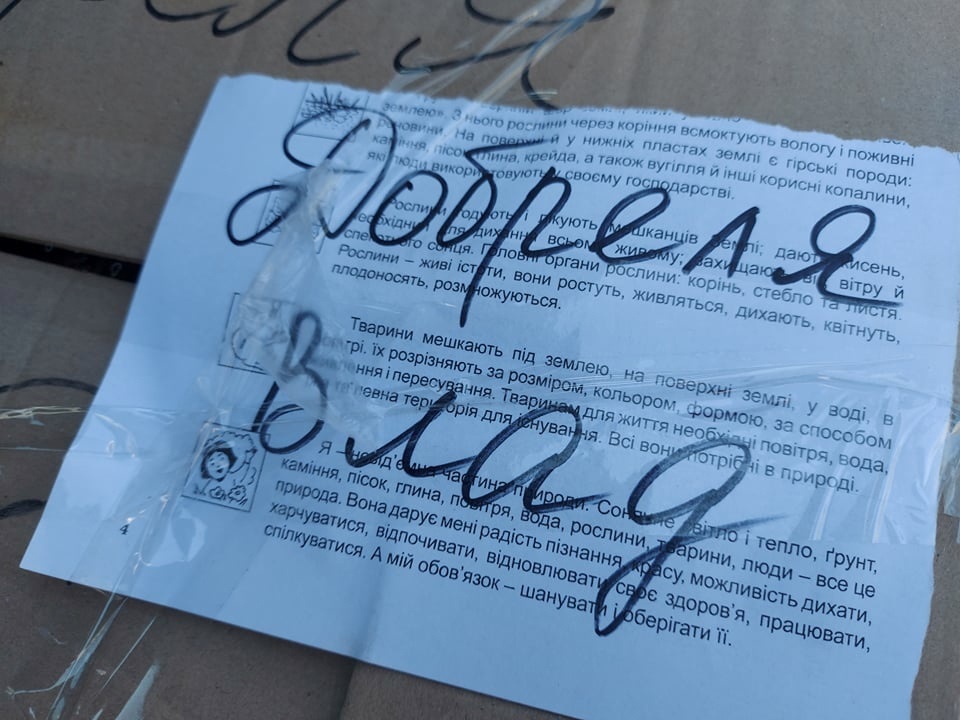 землею». З нього рослини через коріння всмоктують вологу і поживні
речовини. На поверхні й у нижніх пластах землі є гірські породи:
каміння, пісок, глина, крейда, а також вугілля й інші корисні копалини,
які люди використовують у своєму господарстві.
Добреля
Рослини годують і лікують мешканців землі; дають кисень,
необхідний для дихання всьому живому; захищають від вітру й
спекотного сонця. Головні органи рослини: корінь, стебло та листя.
Рослини – живі істоти, вони ростуть, живляться, дихають, квітнуть,
плодоносять, розмножуються.
Тварини мешкають під землею, на поверхні землі, у воді, в
повітрі. їх розрізняють за розміром, кольором, формою, за способом
живлення і пересування. Тваринам для життя необхідні повітря, вода,
їжа та певна територія для існування. Всі вони потрібні в природі.
Влад
Я – невід'ємна частина природи. Сонячне світло і тепло, ґрунт,
каміння, пісок, глина, повітря, вода, рослини, тварини, люди – все це
природа. Вона дарує мені радість пізнання, красу, можливість дихати,
харчуватися, відпочивати, відновлювати своє здоров'я, працювати,
спілкуватися. А мій обов'язок – шанувати і оберігати її.
4